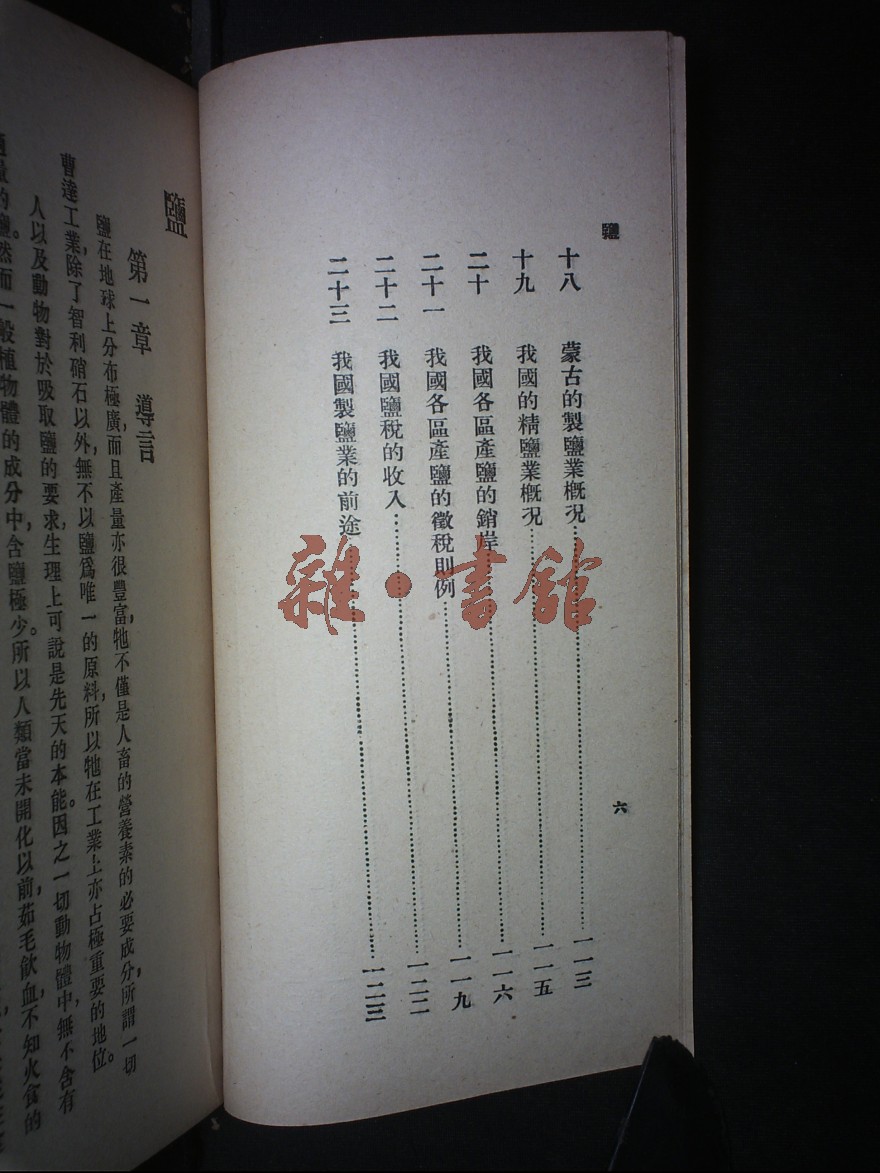 鹽
十八　蒙古的製鹽業概況……一一三
十九　我國的精鹽業概況……一一五
二十　我國各區產鹽的銷岸……一一六
二十一　我國各區產鹽的徵稅則例……一一九
二十二　我國鹽稅的收入……一二二
二十三　我國製鹽業的前途……一二三
六
雜·書館
鹽
第一章　導言
鹽在地球上分布極廣，而且產量亦很豐富，牠不僅是人畜的營養素的必要成分，所謂一切
曹達工業，除了智利硝石以外，無不以鹽爲唯一的原料，所以牠在工業上亦占極重要的地位。
人以及動物對於吸取鹽的要求，生理上可說是先天的本能。因之一切動物體中，無不含有
適量的鹽。然而一般植物體的成分中，含鹽極少。所以人類當未開化以前，茹毛飲血，不知火食的